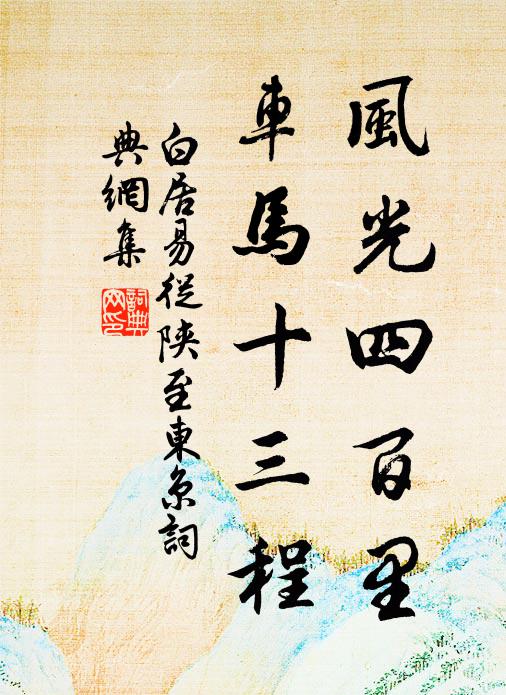 風光四百里
車馬十三程
白居易從陝至東京詞
典網集
詞典
网印